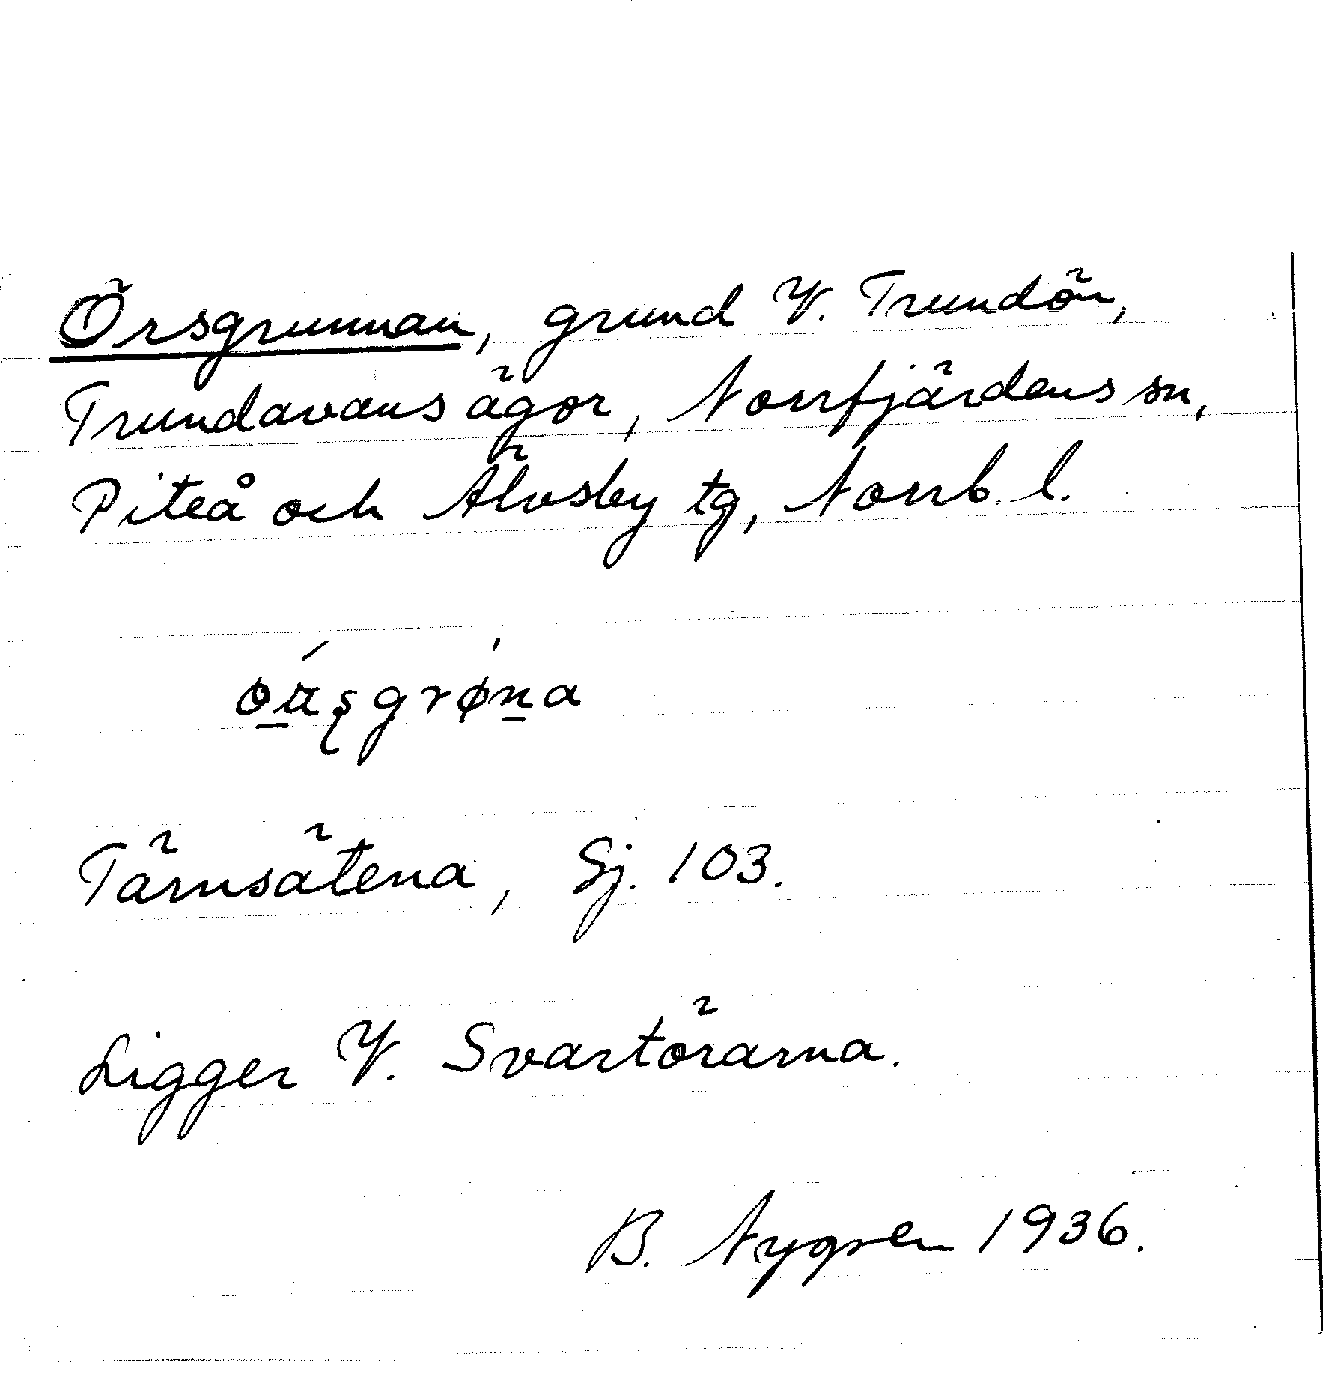 Örsgrunnan, grund V. Trundön,
Trundavans ägor, Norrfjärdens sn,
Piteå och Älvsby tg, Norrb. l.
Tärnsätena, Sj. 103.
Ligger V. Svartörarna.
B. Nygren 1936.